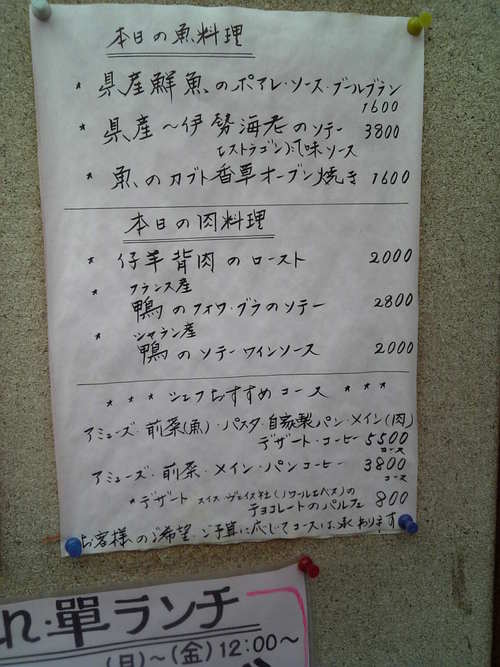 本日の魚料理
* 県産鮮魚のポアレ・ソース・ブールブラン
1600
* 県産〜伊勢海老のソテー 3800
エストラゴン風味ソース
* 魚のカブト香草オーブン焼き 1600
本日の肉料理
* 仔羊背肉のロースト 2000
* フランス産
鴨のフォワ・グラのソテー 2800
* シャラン産
鴨のソテーワインソース 2000
* * * シェフおすすめコース * * *
アミューズ・前菜(魚)・パスタ・自家製パン・メイン(肉)
デザート・コーヒー 5500
コース
アミューズ・前菜・メイン・パンコーヒー 3800
コース
*デザート スイス・ヴェイス社(ノワールエベヌ)の
チョコレートのパルフェ 800
お客様のご希望・ご予算に応じてコースは承ります
れ・單ランチ
(月)〜(金)12:00〜